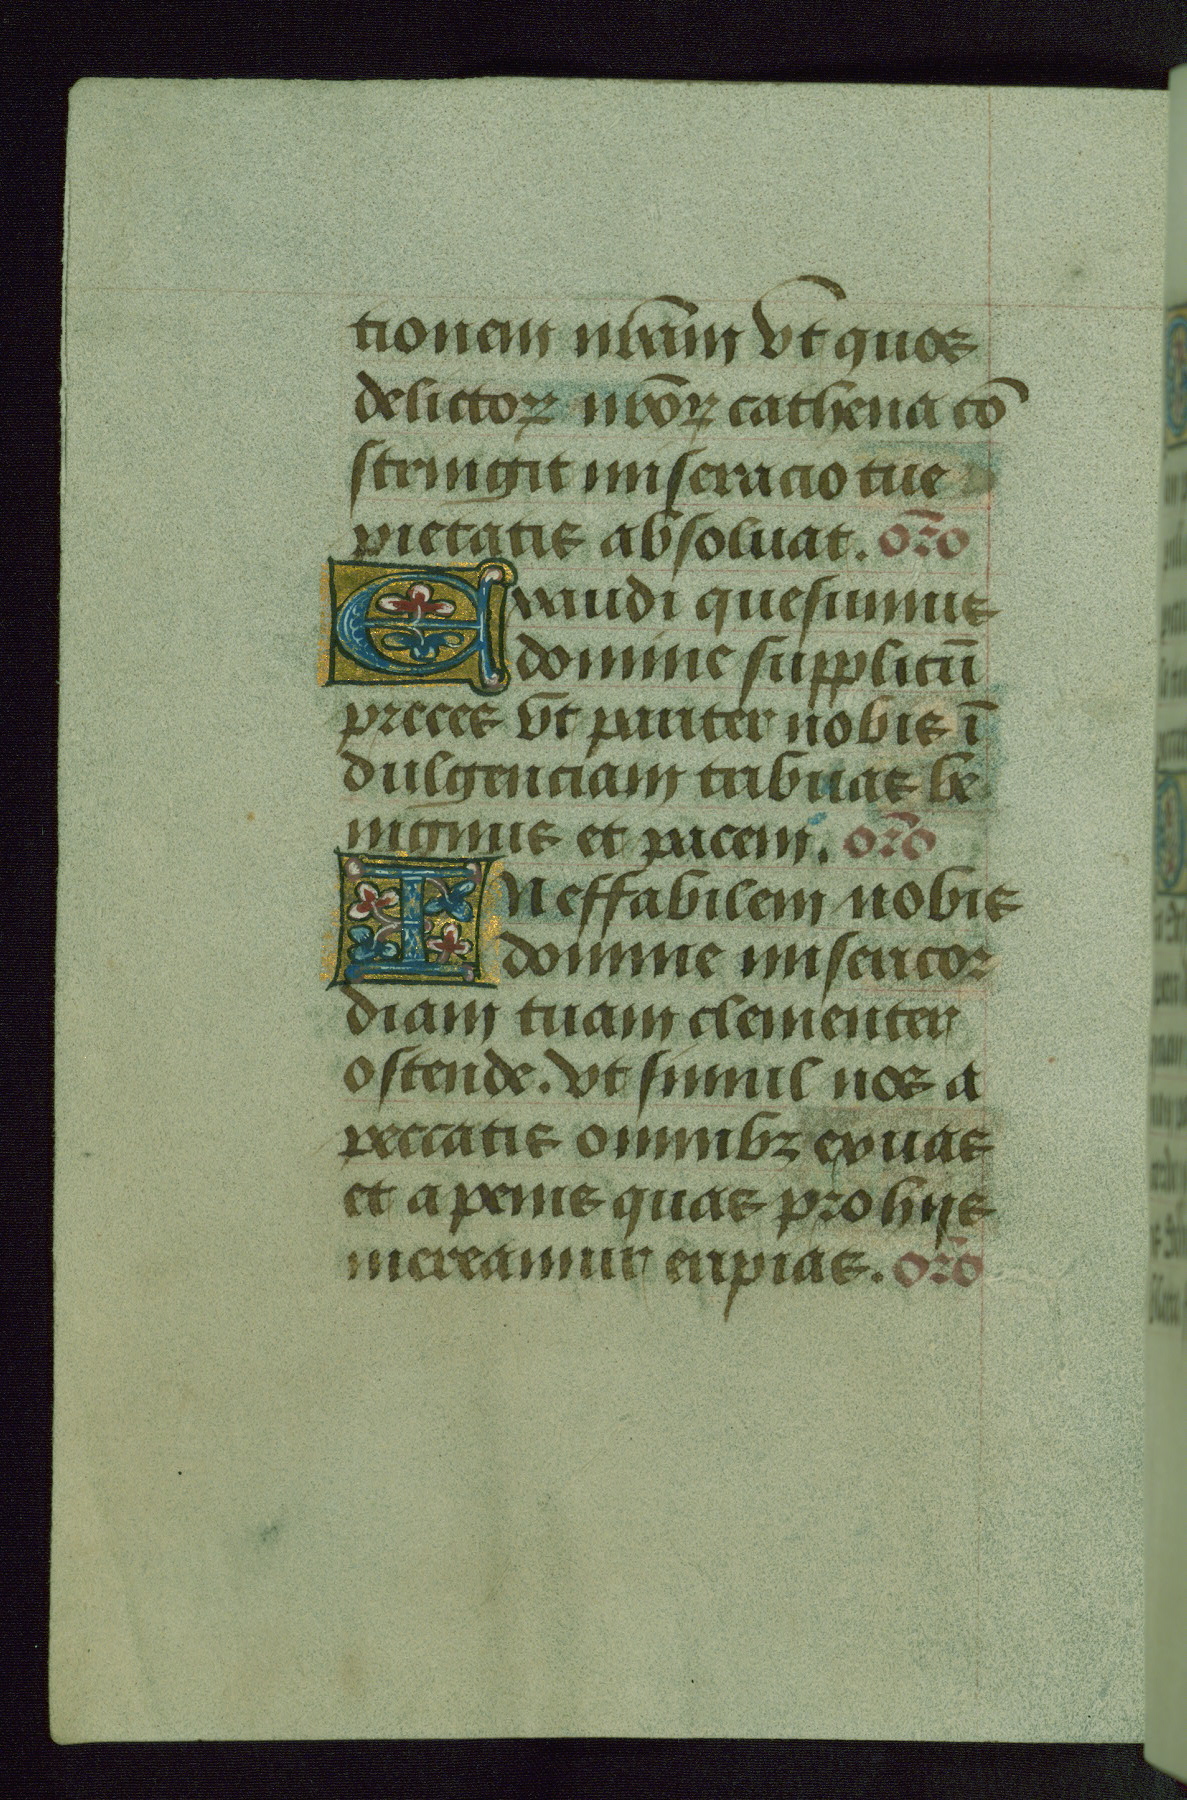 tionem nr̄am vt quos
delictoꝝ nr̄oꝝ cathena cō
stringit miseracio tue
pietatis absoluat. or̄o
Exaudi quesumus
domine supplicū
preces vt pariter nobis ī
dulgenciam tribuas be
nignus et pacem. or̄o
INeffabilem nobis
domine misericor
diam tuam clementer
ostende. vt simul nos a
peccatis omnibꝫ exuas
et a penis quas pro hijs
mereamur eripias. or̄o